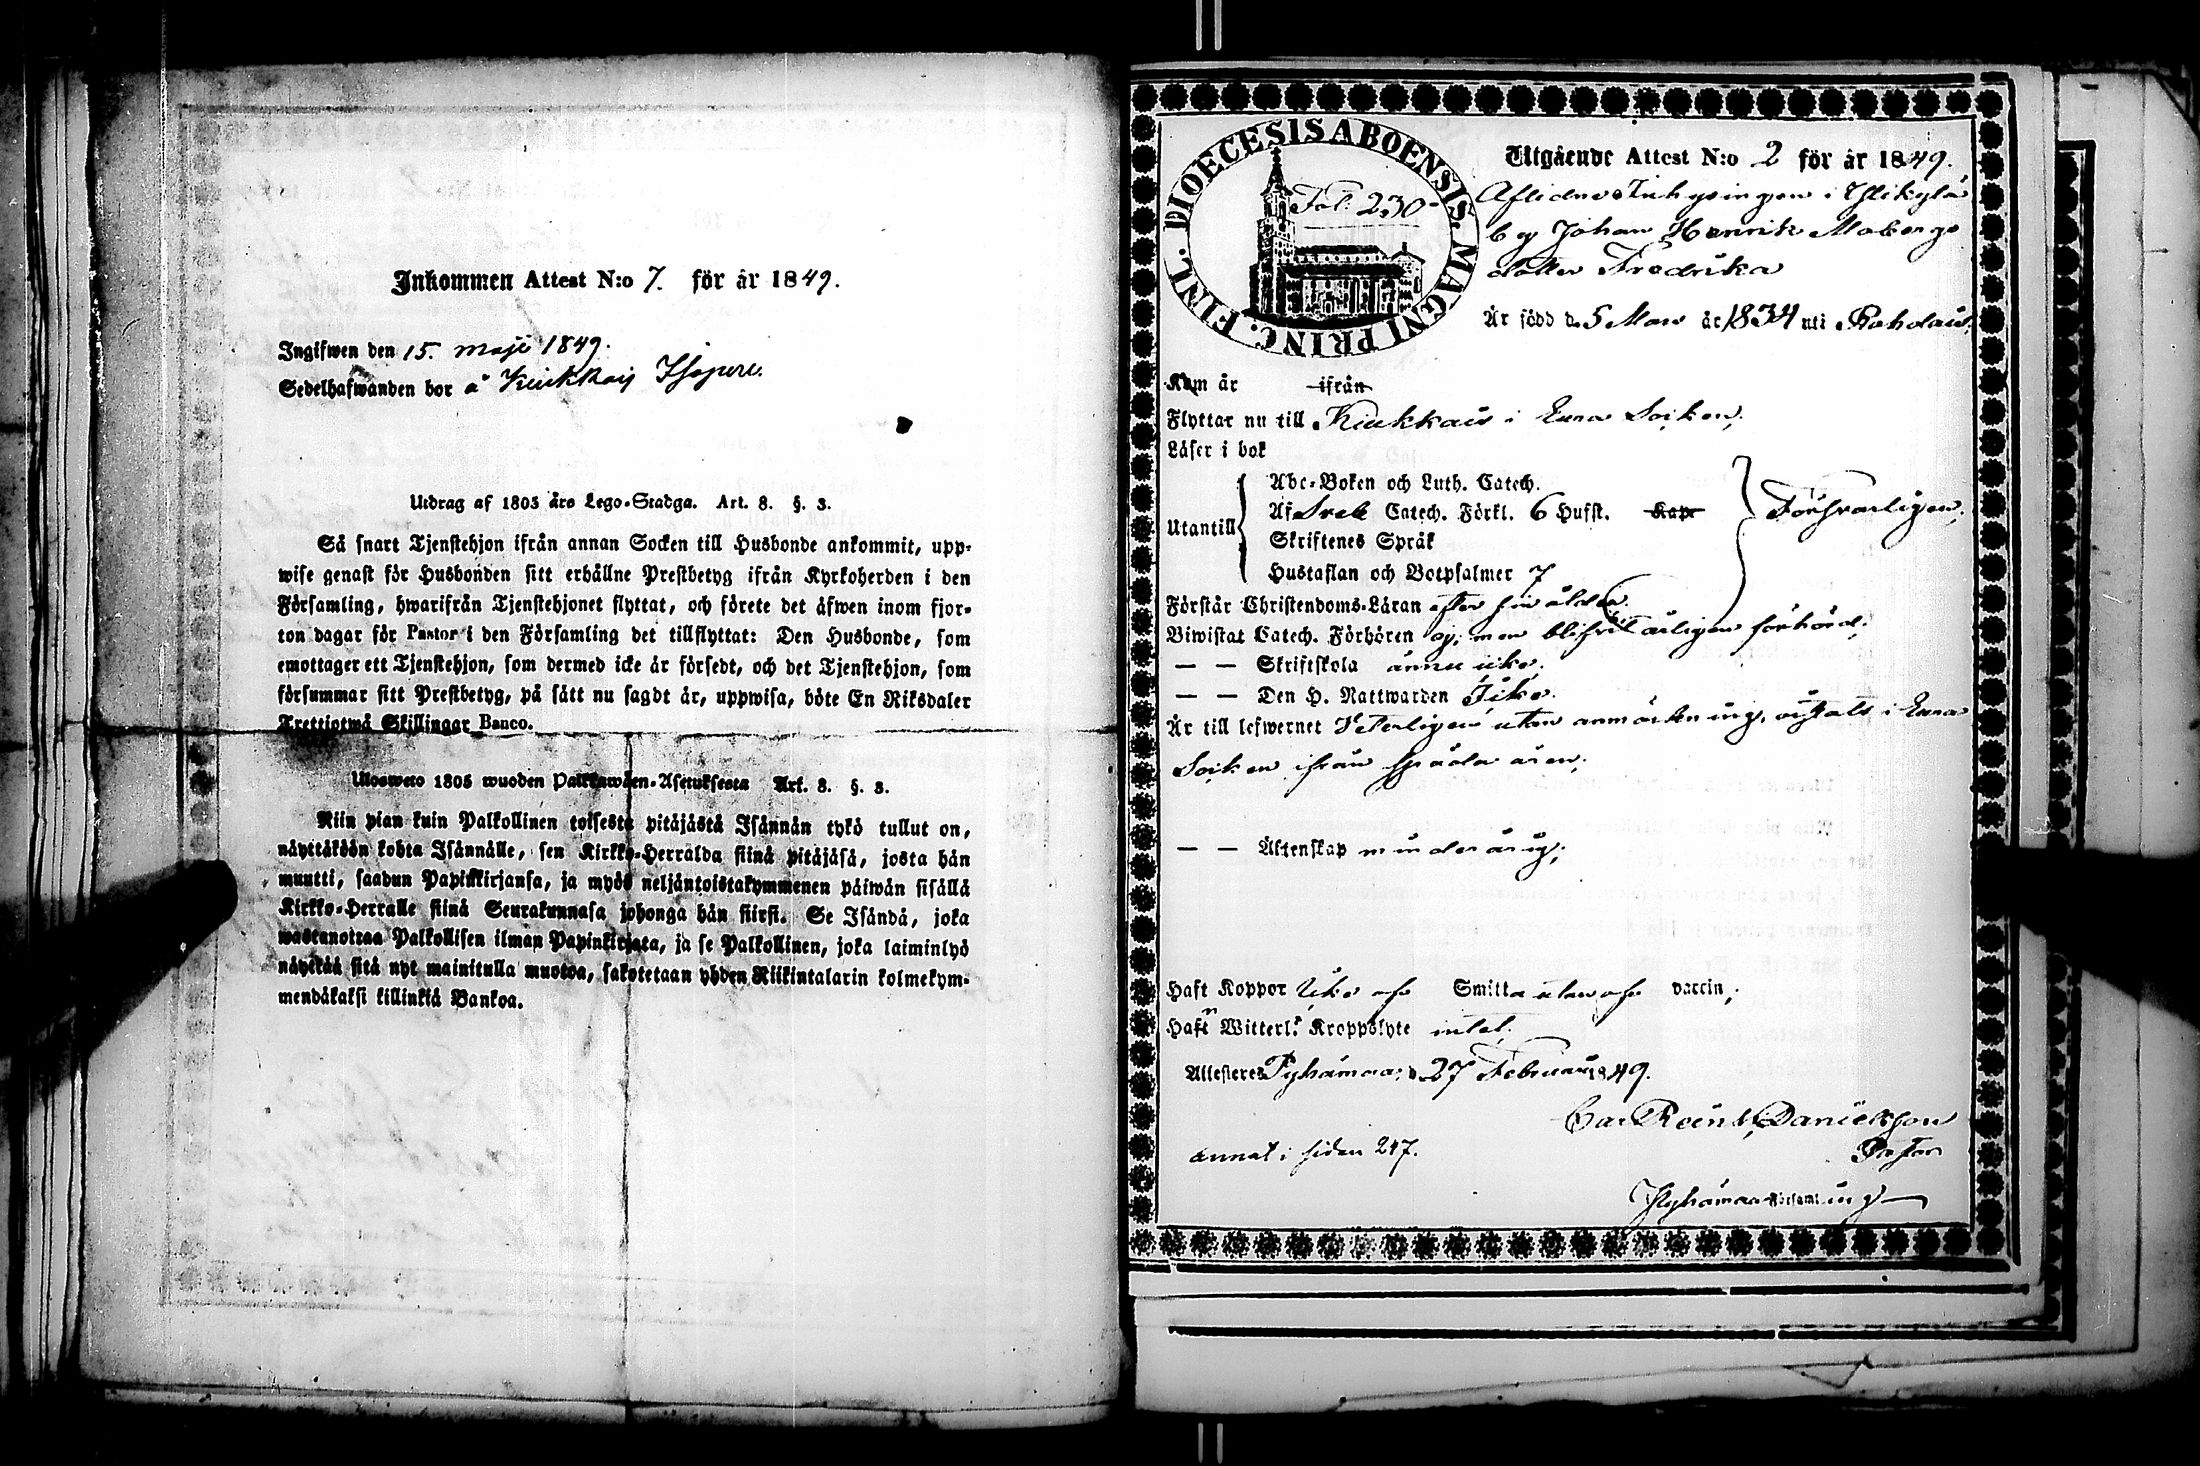 Inkommen Attest N:o 7. för år 1849.
Ingifwen den 15. maji 1849.
Sedelhafwanden bor å Kiukkais
Utdrag af 1805 års Lego-Stadga. Art. 8. §. 3.
Så snart Tjenstehjon ifrån annan Socken till Husbonde ankommit, upp-
wise genast för Husbonden sitt erhållne Prestbetyg ifrån Kyrkoherden i den
Församling, hwarifrån Tjenstehjonet flyttat, och förete det äfwen inom fjor-
ton dagar för Pastor i den Församling det tillflyttat: Den Husbonde, som
emottager ett Tjenstehjon, som dermed icke är försedt, och det Tjenstehjon, som
försummar sitt Prestbetyg, på sätt nu sagdt är, uppwisa, böte En Riksdaler
Trettiotwå Skillingar Banco.
Ulosweto 1805 wuoden Palkkawäen-Asetuksesta Art. 8. §. 3.
Niin pian kuin Palkollinen toisesta pitäjästä Isännän tykö tullut on,
näyttäköön kohta Isännälle, sen Kirkko-Herralda siinä pitäjäsä, josta hän
muutti, saadun Papinkirjansa, ja myös neljäntoistakymmenen päiwän sisällä
Kirkko-Herralle siinä Seurakunnasa johonga hän siirsi. Se Isändä, joka
wastanottaa Palkollisen ilman Papinkirjata, ja se Palkollinen, joka laiminlyö
näyttää sitä nyt mainitulla muotoa, sakotetaan yhden Riikintalarin kolmekym-
mendäkaksi killinkiä Bankoa.
DIOECESIS ABOENSIS. MAGNI PRINC. FINL.
Fol. 230
Utgående Attest N:o 2 för år 1849.
Aflidne Inhysingen i Ylikylä
by Johan Henrik Mobergs
dotter Fredrika
Är född d. 5 Mars år 1834 uti
Kom år ifrån
Flyttar nu till Kiukkais i Eura Socken;
Läser i bok
Utantill
Abc-Boken och Luth. Catech.
Af Sveb Catech. Förkl. 6 Hufst. Kap.
Skriftenes Språk
Hustaflan och Botpsalmer 7
Försvarligen;
Förstår Christendoms-Läran efter sin ålder.
Biwistat Catech. Förhören ej; men blifvit årligen förhörd;
— — Skriftskola ännu icke.
— — Den H. Nattwarden Icke.
Är till lefwernet Veterligen utan anmärkning, vistats i Eura
Socken ifrån späda åren;
— — Äktenskap minderårig;
Haft Koppor Icke af Smitta utan af vaccin;
Hafn Witterl. Kroppslyte intet;
Attesteres Pyhämaa, d. 27 Februari 1849.
Carl Reinh. Danielsson
Pastor
annot. i sidan 247.
Pyhämaa Församling